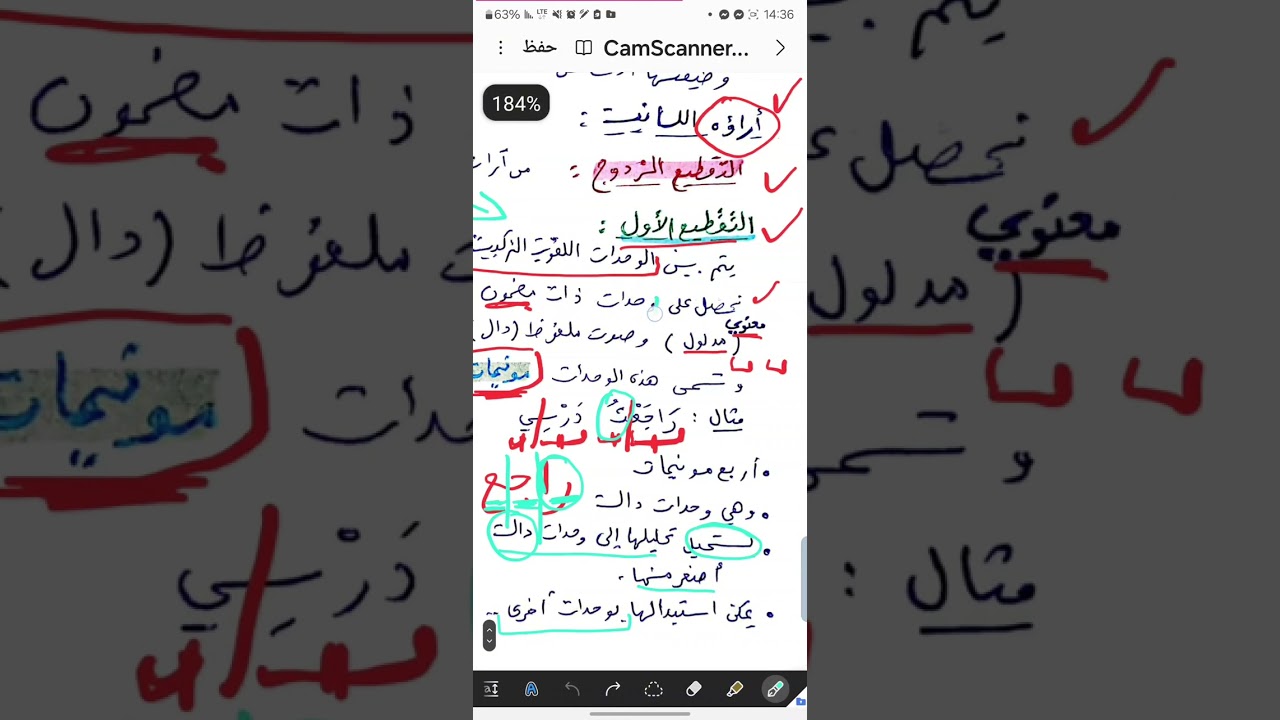 63% LTE 14:36
CamScanner... حفظ
184%
أراؤه اللسانية :
التقطيع المزدوج :
من آراء
التقطيع الأول :
يتم بين الوحدات اللغوية التركيبية
نحصل على وحدات ذات مضمون
معنوي
(مدلول) وصوت ملفوظ (دال)
وتسمى هذه الوحدات مونيمات
مثال : رَاجَعْتُ دَرْسِي
• أربع مونيمات
راجع
• وهي وحدات دالة
• تستحيل تحليلها إلى وحدات دالة
أصغر منها .
• يمكن استبدالها بوحدات أخرى ..